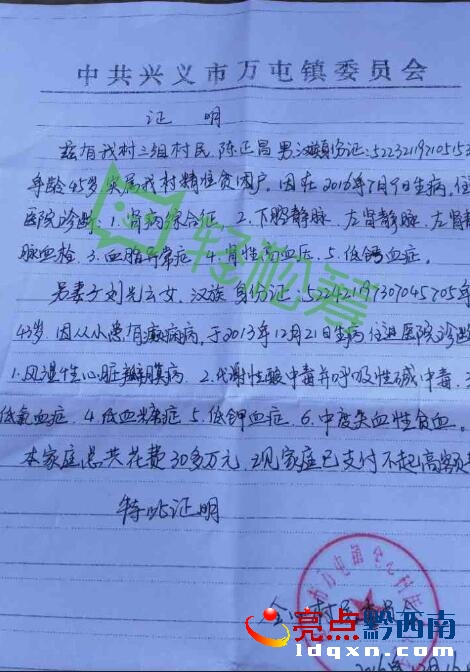 中共兴义市万屯镇委员会
证 明
兹有我村三组村民 陈正昌 男 汉族 身份证:52232119710515
年龄45岁 实属我村精准贫困户。因在2016年7月9日生病,住
医院诊断:1.肾病综合征 2.下腔静脉 左肾静脉 左肾静
脉血栓 3.血脂异常症 4.肾性高血压 5.低钙血症。
另妻子刘先云 女,汉族 身份证:
43岁,因从小患有癫痫病,于2013年12月21日生病住进医院诊断
1.风湿性心脏瓣膜病 2.代谢性酸中毒并呼吸性碱中毒
低氧血症 4.低血糖症 5.低钾血症 6.中度失血性贫血。
本家庭总共花费30多万元,现家庭已支付不起高额
特此证明
轻松筹
亮点黔西南
ldqxn.com